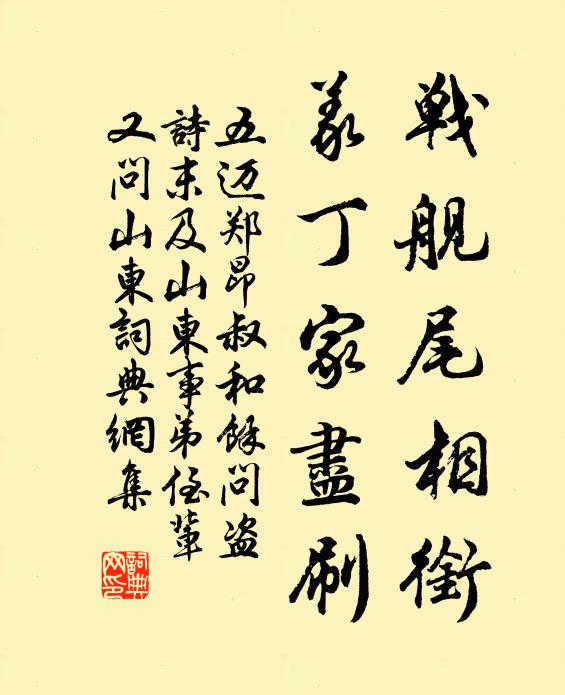 战舰尾相銜
義丁家盡刷
五迈郑昂叔和餘问盗
詩末及山東事弟侄輩
又问山東詞典網集
詞典網印